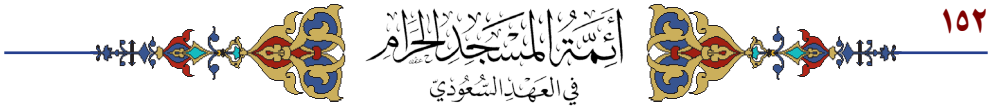 ١٥٢
أَئِمَّةُ المَسْجِدِ الحَرَامِ
في العَهْدِ السُّعُودِيّ